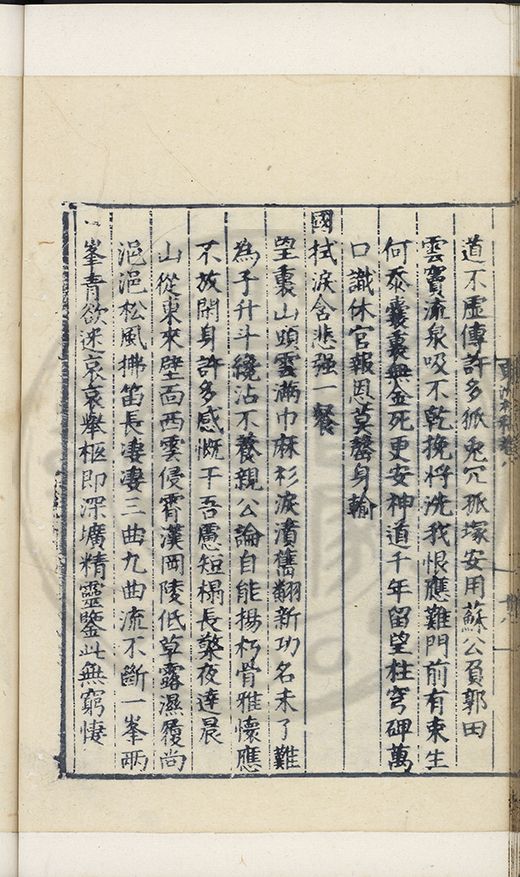 道不虛傳許多狐兎穴孤塚安用蘇公負郭田
雲竇流泉吸不乾挽將洗我恨應難門前有柬生
何忝囊裏無金死更安神道千年留望柱穹碑萬
口識休官報恩莫罄身輸
國拭淚含悲强一餐
望裏山頭雲滿巾麻衫淚漬舊翻新功名未了難
為子升斗纔沾不養親公論自能揚朽骨雅懷應
不放閑身許多感慨干吾慮短榻長檠夜達晨
山從東來壁面西雲侵霄漢岡陵低草露濕履尚
浥浥松風拂笛長凄凄三曲九曲流不斷一峯兩
峯青欲迷哀哀舉柩即深壙精靈鑒此無窮悽